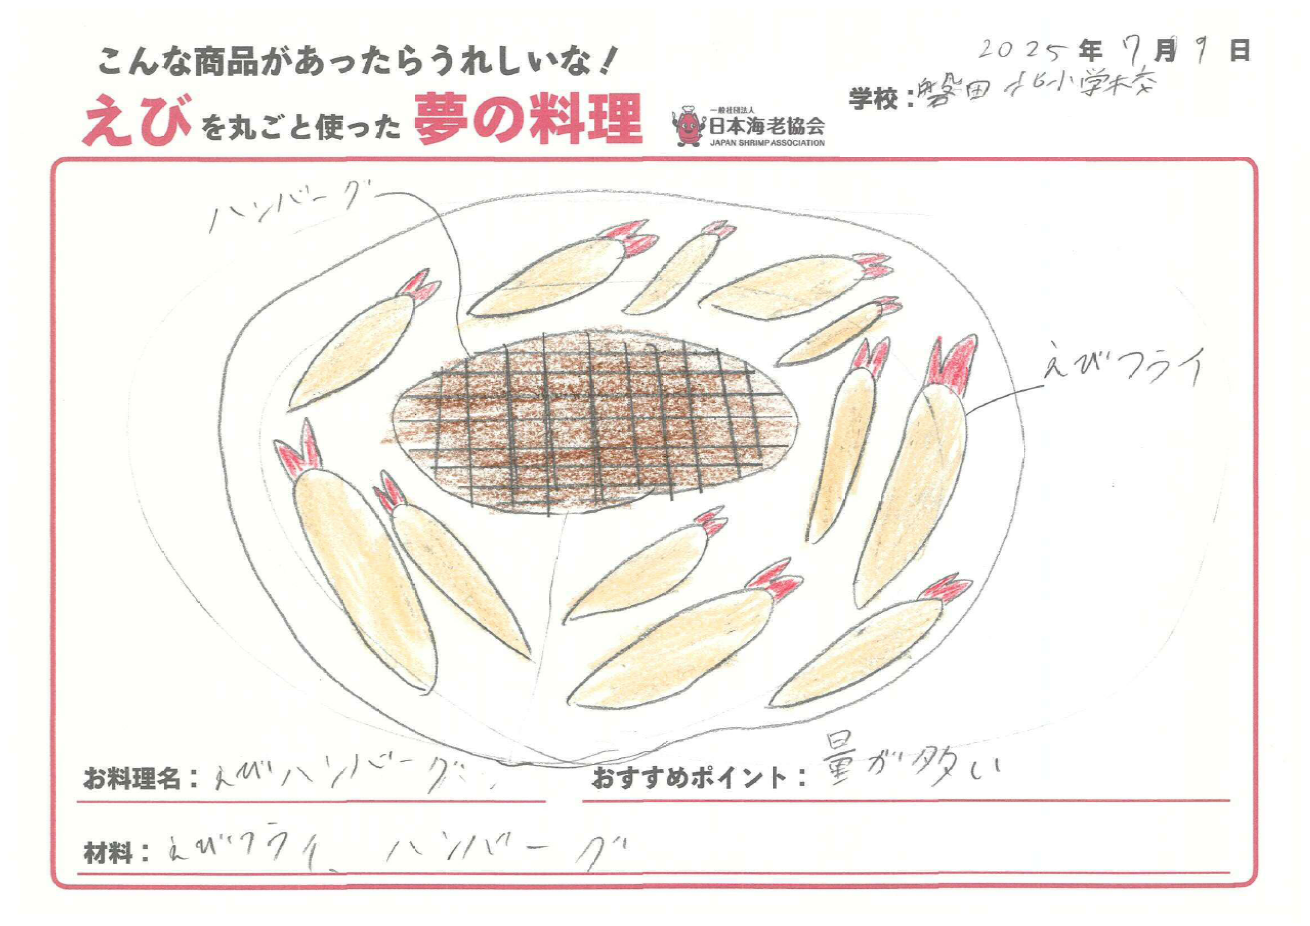 こんな商品があったらうれしいな!
2025年7月9日
えびを丸ごと使った夢の料理
一般社団法人
日本海老協会
JAPAN SHRIMP ASSOCIATION
学校:磐田北小学校
ハンバーグ
えびフライ
お料理名:えびハンバーグ
おすすめポイント:量が多い
材料:えびフライ、ハンバーグ